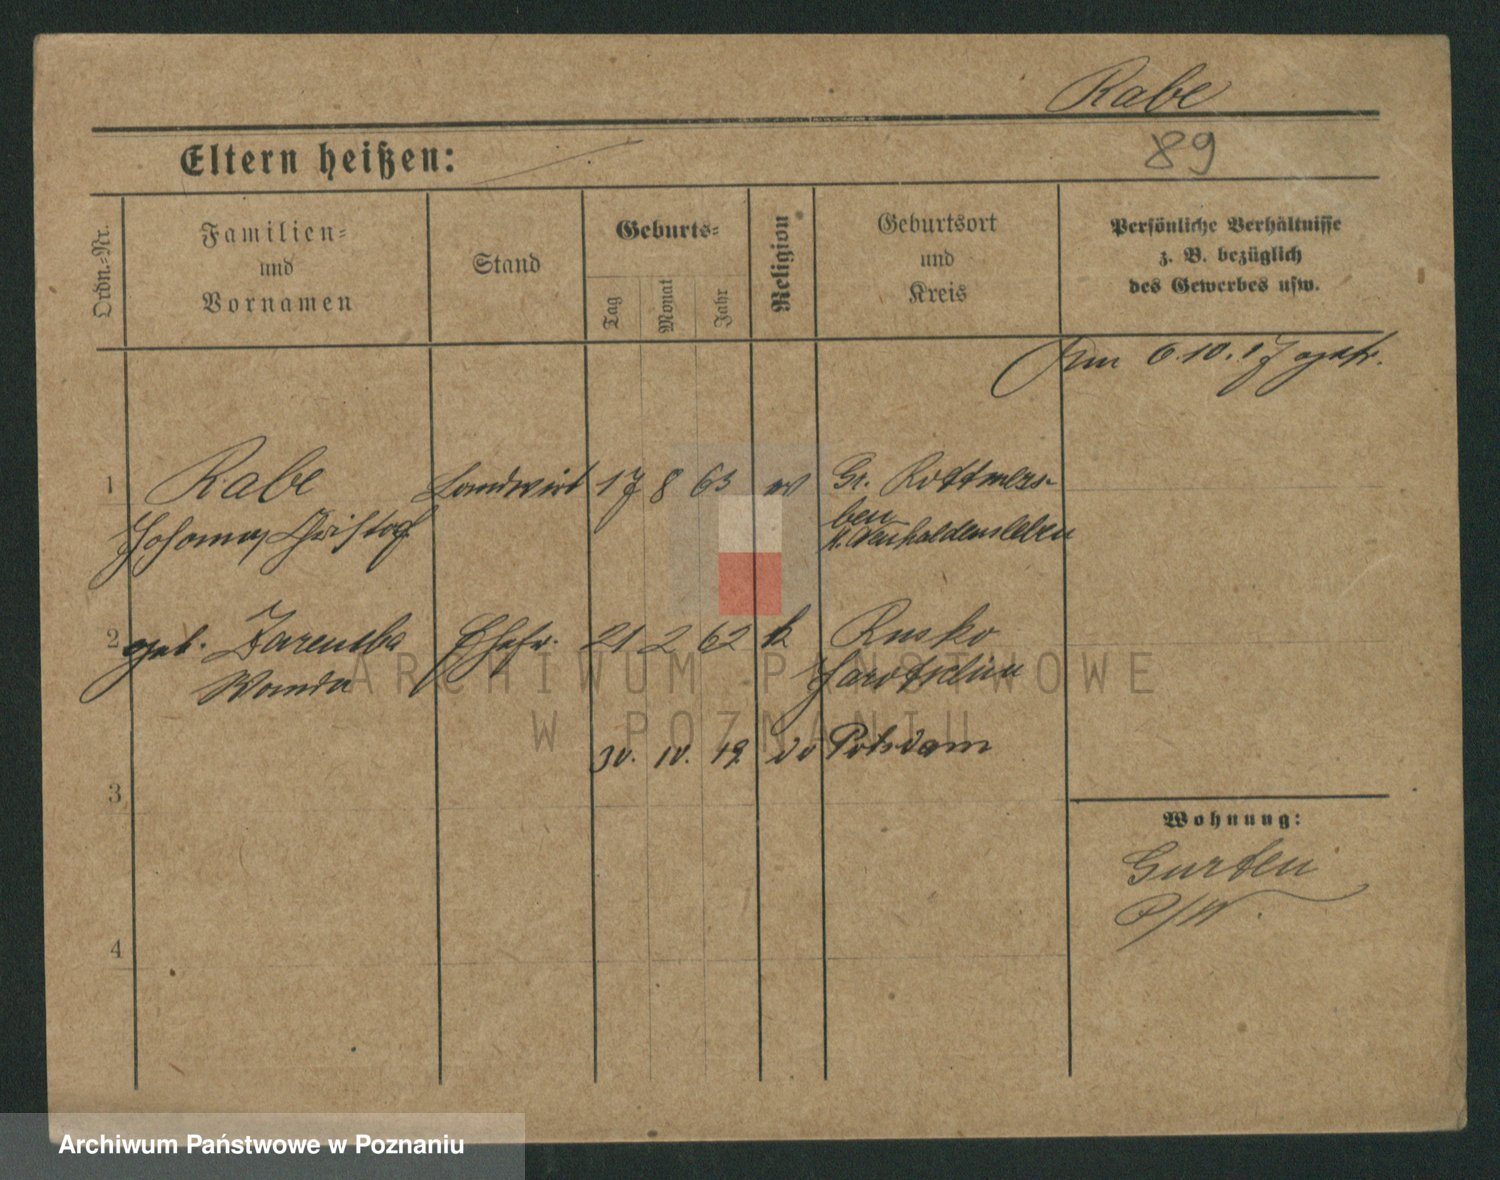 Rabe
89
Eltern heißen:
Ordn.-Nr.
Familien-
und
Vornamen
Stand
Geburts-
Tag
Monat
Jahr
Religion
Geburtsort
und
Kreis
Persönliche Verhältnisse
z. B. bezüglich
des Gewerbes usw.
Am 6.10.17 gestr.
1
Rabe
Landwirt 17 8 63 ev Gr. Rottmers-
ben
Johannes Christof
K. Neuhaldensleben
2
geb. Zaremba
Ehefr. 21 2 62 k Rusko
Wanda
Jarotschin
30. 10. 19 Potsdam
3
Wohnung:
Gurten
P/W.
4
ARCHIWUM PAŃSTWOWE
W POZNANIU
Archiwum Państwowe w Poznaniu